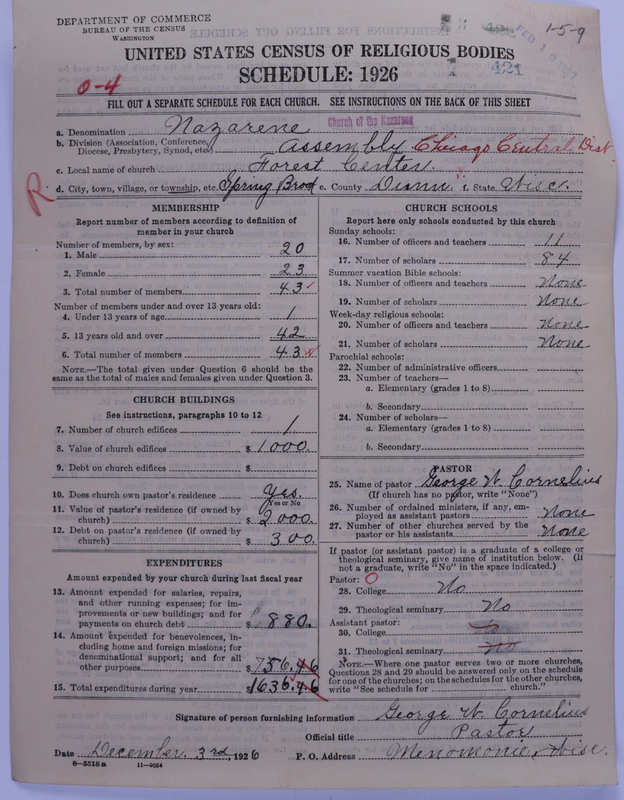 DEPARTMENT OF COMMERCE
BUREAU OF THE CENSUS
WASHINGTON
1-5-9
421
UNITED STATES CENSUS OF RELIGIOUS BODIES
SCHEDULE: 1926
0-4
FILL OUT A SEPARATE SCHEDULE FOR EACH CHURCH. SEE INSTRUCTIONS ON THE BACK OF THIS SHEET
a. Denomination Nazarene Church of the Nazarene
b. Division (Association, Conference, Diocese, Presbytery, Synod, etc.) Assembly Chicago Central Dist
c. Local name of church Forest Center.
R
d. City, town, village, or township, etc. Spring Brook e. County Dunn f. State Wisc.
MEMBERSHIP
Report number of members according to definition of
member in your church
Number of members, by sex:
1. Male 20
2. Female 23
3. Total number of members 43
Number of members under and over 13 years old:
4. Under 13 years of age 1
5. 13 years old and over 42
6. Total number of members 43
NOTE.—The total given under Question 6 should be the
same as the total of males and females given under Question 3.
CHURCH BUILDINGS
See instructions, paragraphs 10 to 12
7. Number of church edifices 1
8. Value of church edifices $1000.
9. Debt on church edifices $
10. Does church own pastor's residence Yes.
Yes or No
11. Value of pastor's residence (if owned by
church) $2000.
12. Debt on pastor's residence (if owned by
church) $300.
EXPENDITURES
Amount expended by your church during last fiscal year
13. Amount expended for salaries, repairs,
and other running expenses; for im-
provements or new buildings; and for
payments on church debt $880.
14. Amount expended for benevolences, in-
cluding home and foreign missions; for
denominational support; and for all
other purposes $756.46
15. Total expenditures during year $1636.46
CHURCH SCHOOLS
Report here only schools conducted by this church
Sunday schools:
16. Number of officers and teachers 11
17. Number of scholars 84
Summer vacation Bible schools:
18. Number of officers and teachers None
19. Number of scholars None
Week-day religious schools:
20. Number of officers and teachers None
21. Number of scholars None
Parochial schools:
22. Number of administrative officers
23. Number of teachers—
a. Elementary (grades 1 to 8)
b. Secondary
24. Number of scholars—
a. Elementary (grades 1 to 8)
b. Secondary
PASTOR
25. Name of pastor George W. Cornelius
(If church has no pastor, write "None")
26. Number of ordained ministers, if any, em-
ployed as assistant pastors None
27. Number of other churches served by the
pastor or his assistants None
If pastor (or assistant pastor) is a graduate of a college or
theological seminary, give name of institution below. (If
not a graduate, write "No" in the space indicated.)
Pastor: 0
28. College No
29. Theological seminary No
Assistant pastor:
30. College No
31. Theological seminary No
NOTE.—Where one pastor serves two or more churches,
Questions 28 and 29 should be answered only on the schedule
for one of the churches; on the schedules for the other churches,
write "See schedule for church."
Signature of person furnishing information George W. Cornelius
Official title Pastor
Date December 3rd, 1926 P. O. Address Menomonie, Wisc.
8-5518a 11-9054